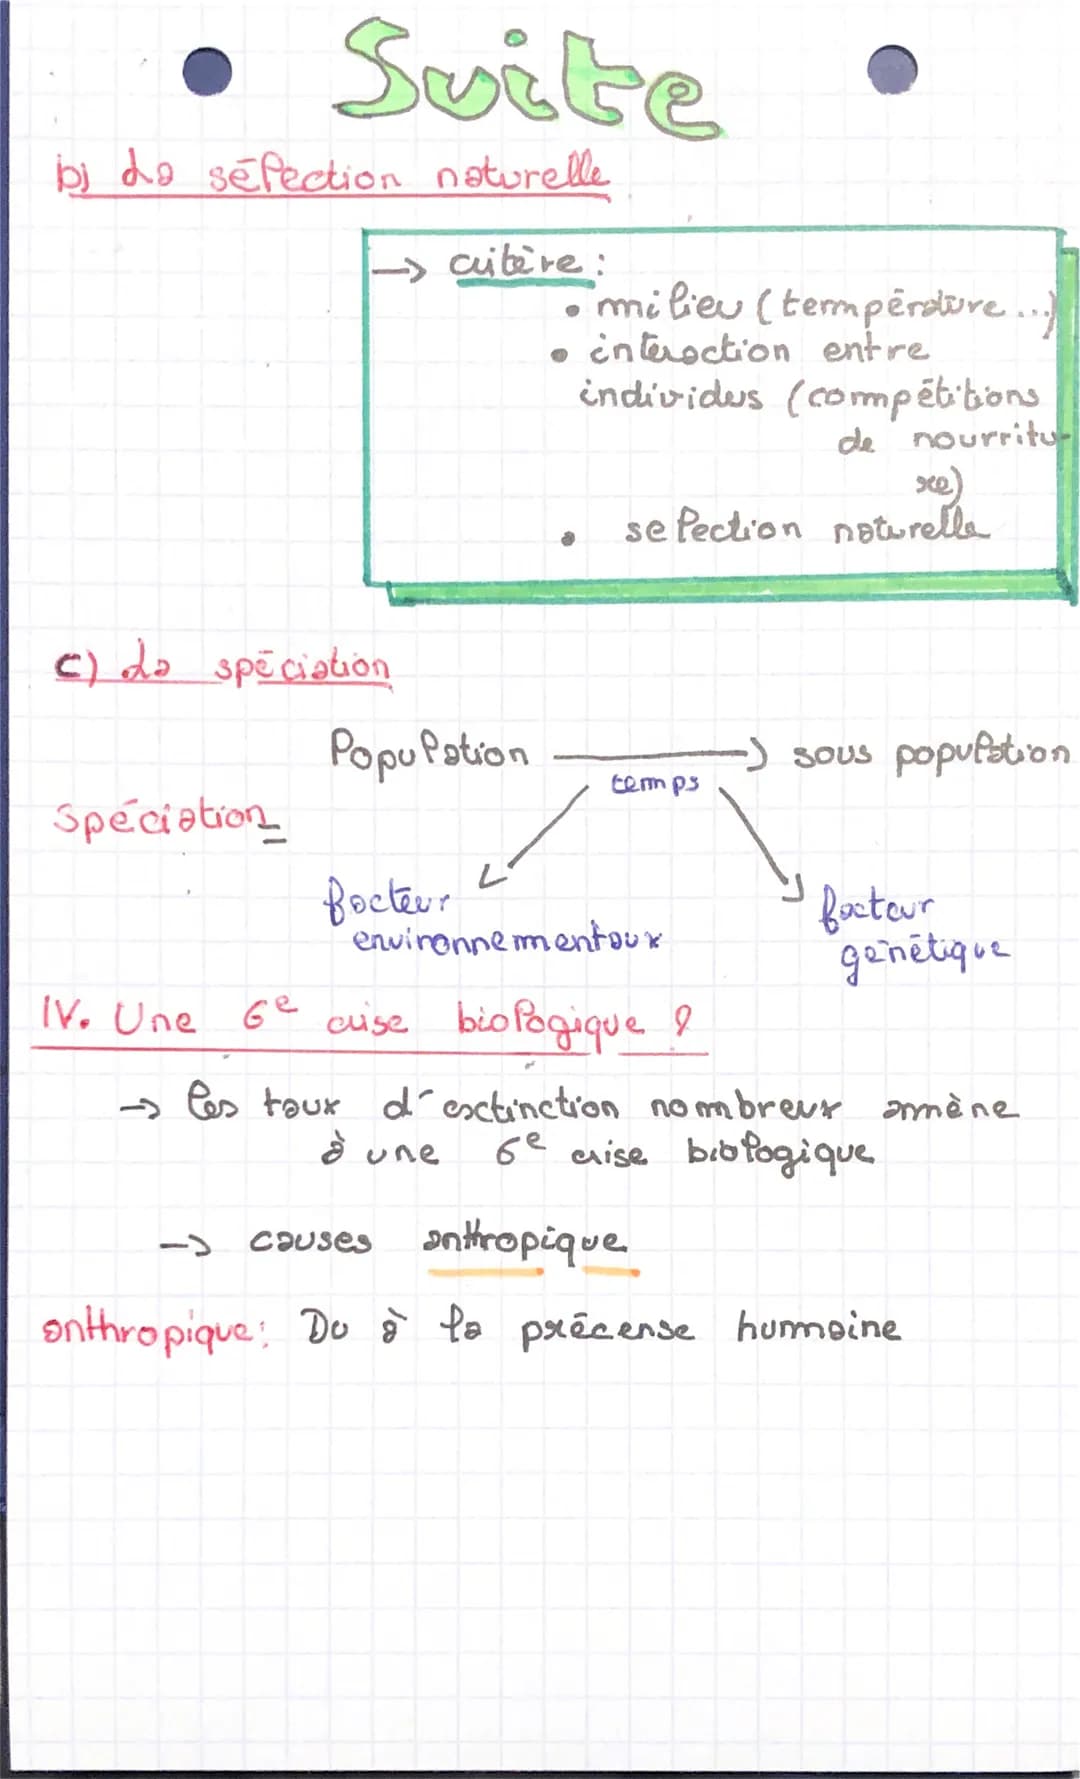 Suite
b) La sélection naturelle
→ critère :
• milieu (température...)
• interaction entre
individus (compétitions
de nourritu-
re)
• selection naturelle
c) La spéciation
Population → sous population
temps
spéciation
facteur
environnementaux
facteur
génétique
IV. Une 6e crise biologique ?
→ les taux d'exctinction nombreux amène
à une 6e crise biologique
→ causes anthropique
anthropique: Du à la précense humaine